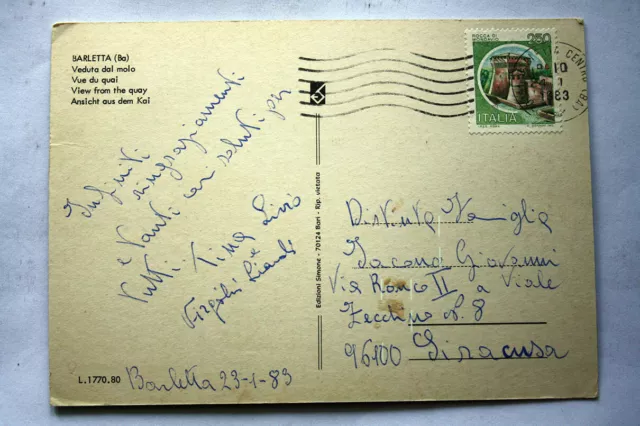 BARLETTA (Ba)
Veduta dal molo
Vue du quai
View from the quay
Ansicht aus dem Kai
Infiniti
ringraziamenti
e tanti cari saluti per
tutti. Tina
L.1770.80
Barletta 23-1-83
Edizioni Simone - 70124 Bari - Rip. vietata
ROCCA DI
MONDAVIO
250
ITALIA
CENTRO
10
1
83
Distinta Famiglia
Iacono Giovanni
Via Romo II a Viale
Zecchino N. 8
96100 Siracusa